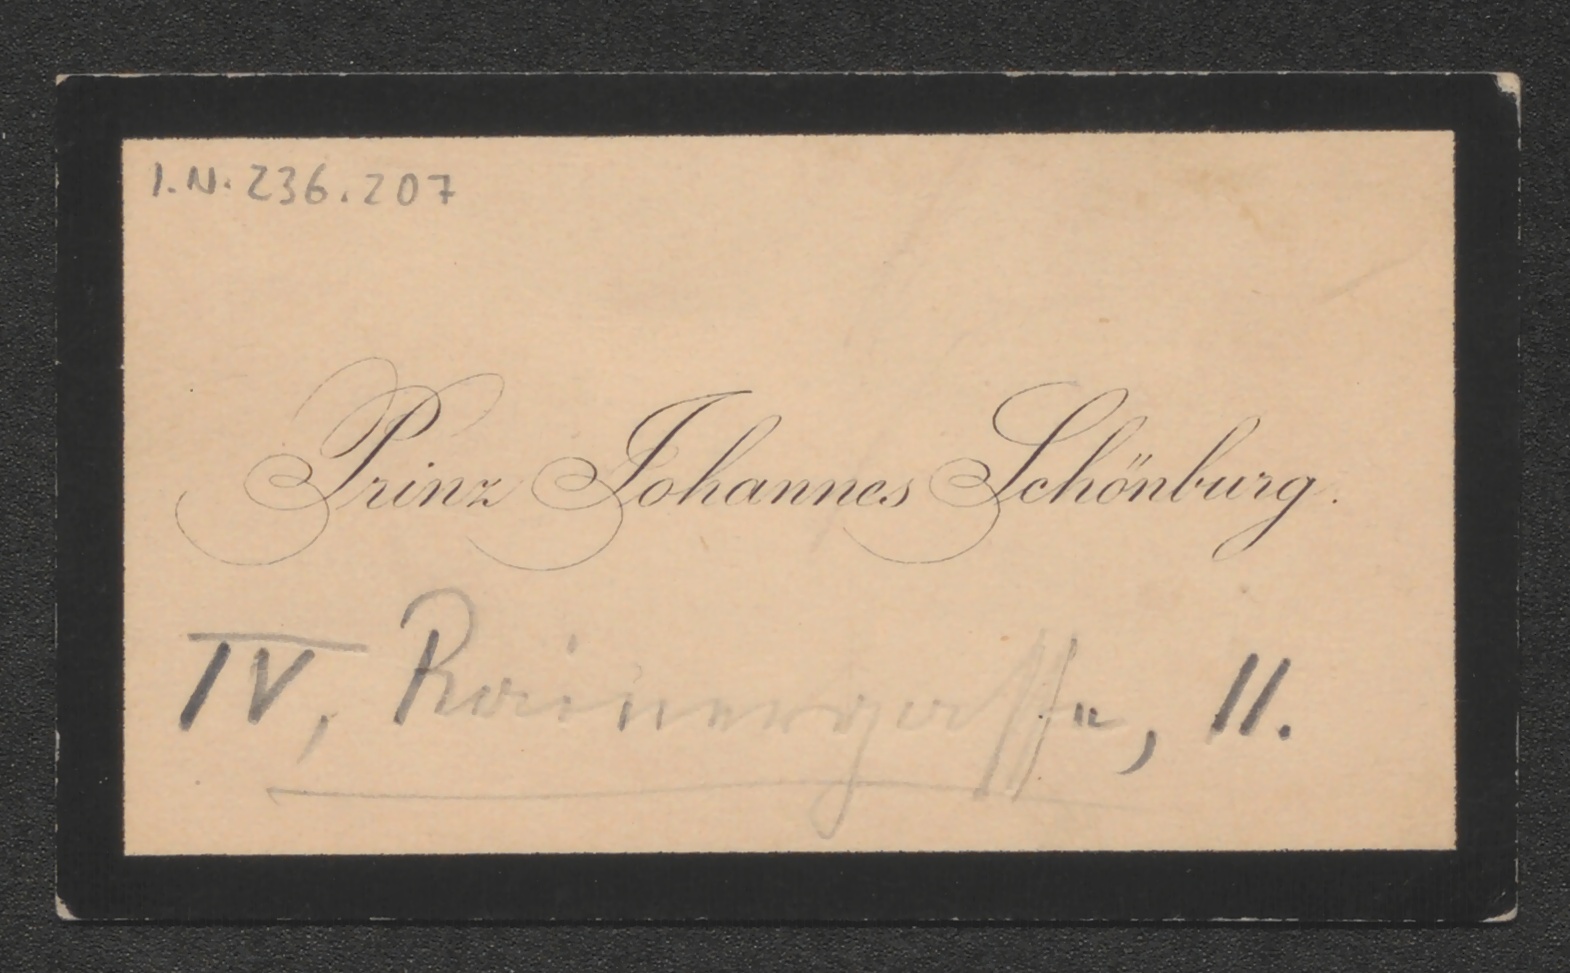 I.N. 236.207
Prinz Johannes Schönburg.
IV, Rainergasse, 11.